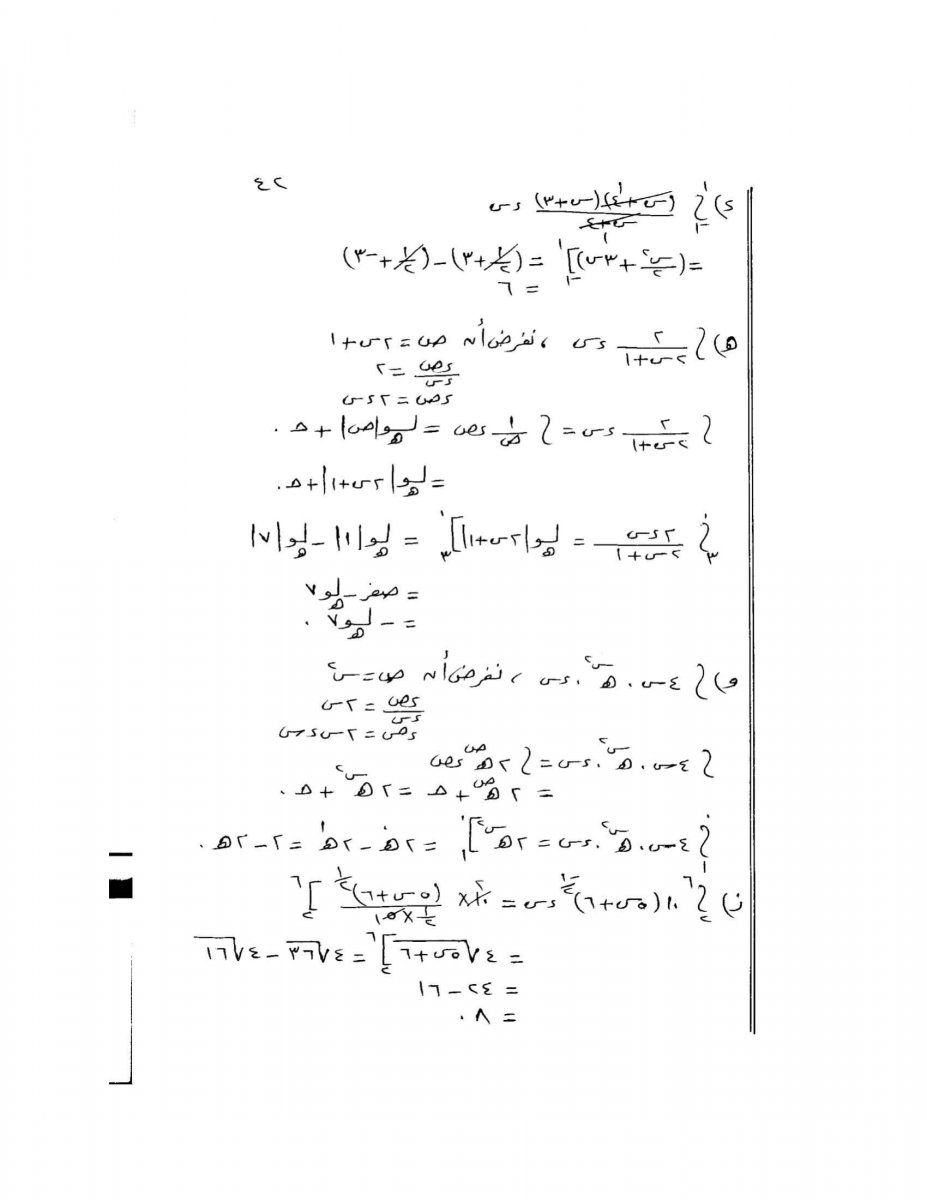 ٤٢
د) ∫₋₁¹ (س+٤)(س+٣)/(س+٤) دس
= (س²/٢ + ٣س)]₋₁¹ = (١/٢+٣) − (١/٢+−٣)
= ٦
هـ) ∫ ٢/(٢س+١) دس ، نفرض أن ص = ٢س+١
دص/دس = ٢
دص = ٢دس
∫ ٢/(٢س+١) دس = ∫ ١/ص دص = لوهـ|ص| + حـ.
= لوهـ|٢س+١| + حـ.
∫₃⁰ ٢دس/(٢س+١) = لوهـ|٢س+١|]₃⁰ = لوهـ|١| − لوهـ|٧|
= صفر − لوهـ٧
= − لوهـ٧ .
و) ∫ ٤س . هـ^س² . دس ، نفرض أن ص = س²
دص/دس = ٢س
دص = ٢س دس
∫ ٤س . هـ^س² . دس = ∫ ٢هـ^ص دص
= ٢هـ^ص + حـ = ٢هـ^س² + حـ.
∫₁⁰ ٤س . هـ^س² . دس = ٢هـ^س²]₁⁰ = ٢هـ⁰ − ٢هـ¹ = ٢ − ٢هـ.
ز) ∫₂⁶ ١٠(٥س+٦)^(−١/٢) دس = ١٠ × (٥س+٦)^(١/٢)/(١/٢×٥)]₂⁶
= ٤√(٥س+٦)]₂⁶ = ٤√٣٦ − ٤√١٦
= ٢٤ − ١٦
= ٨ .